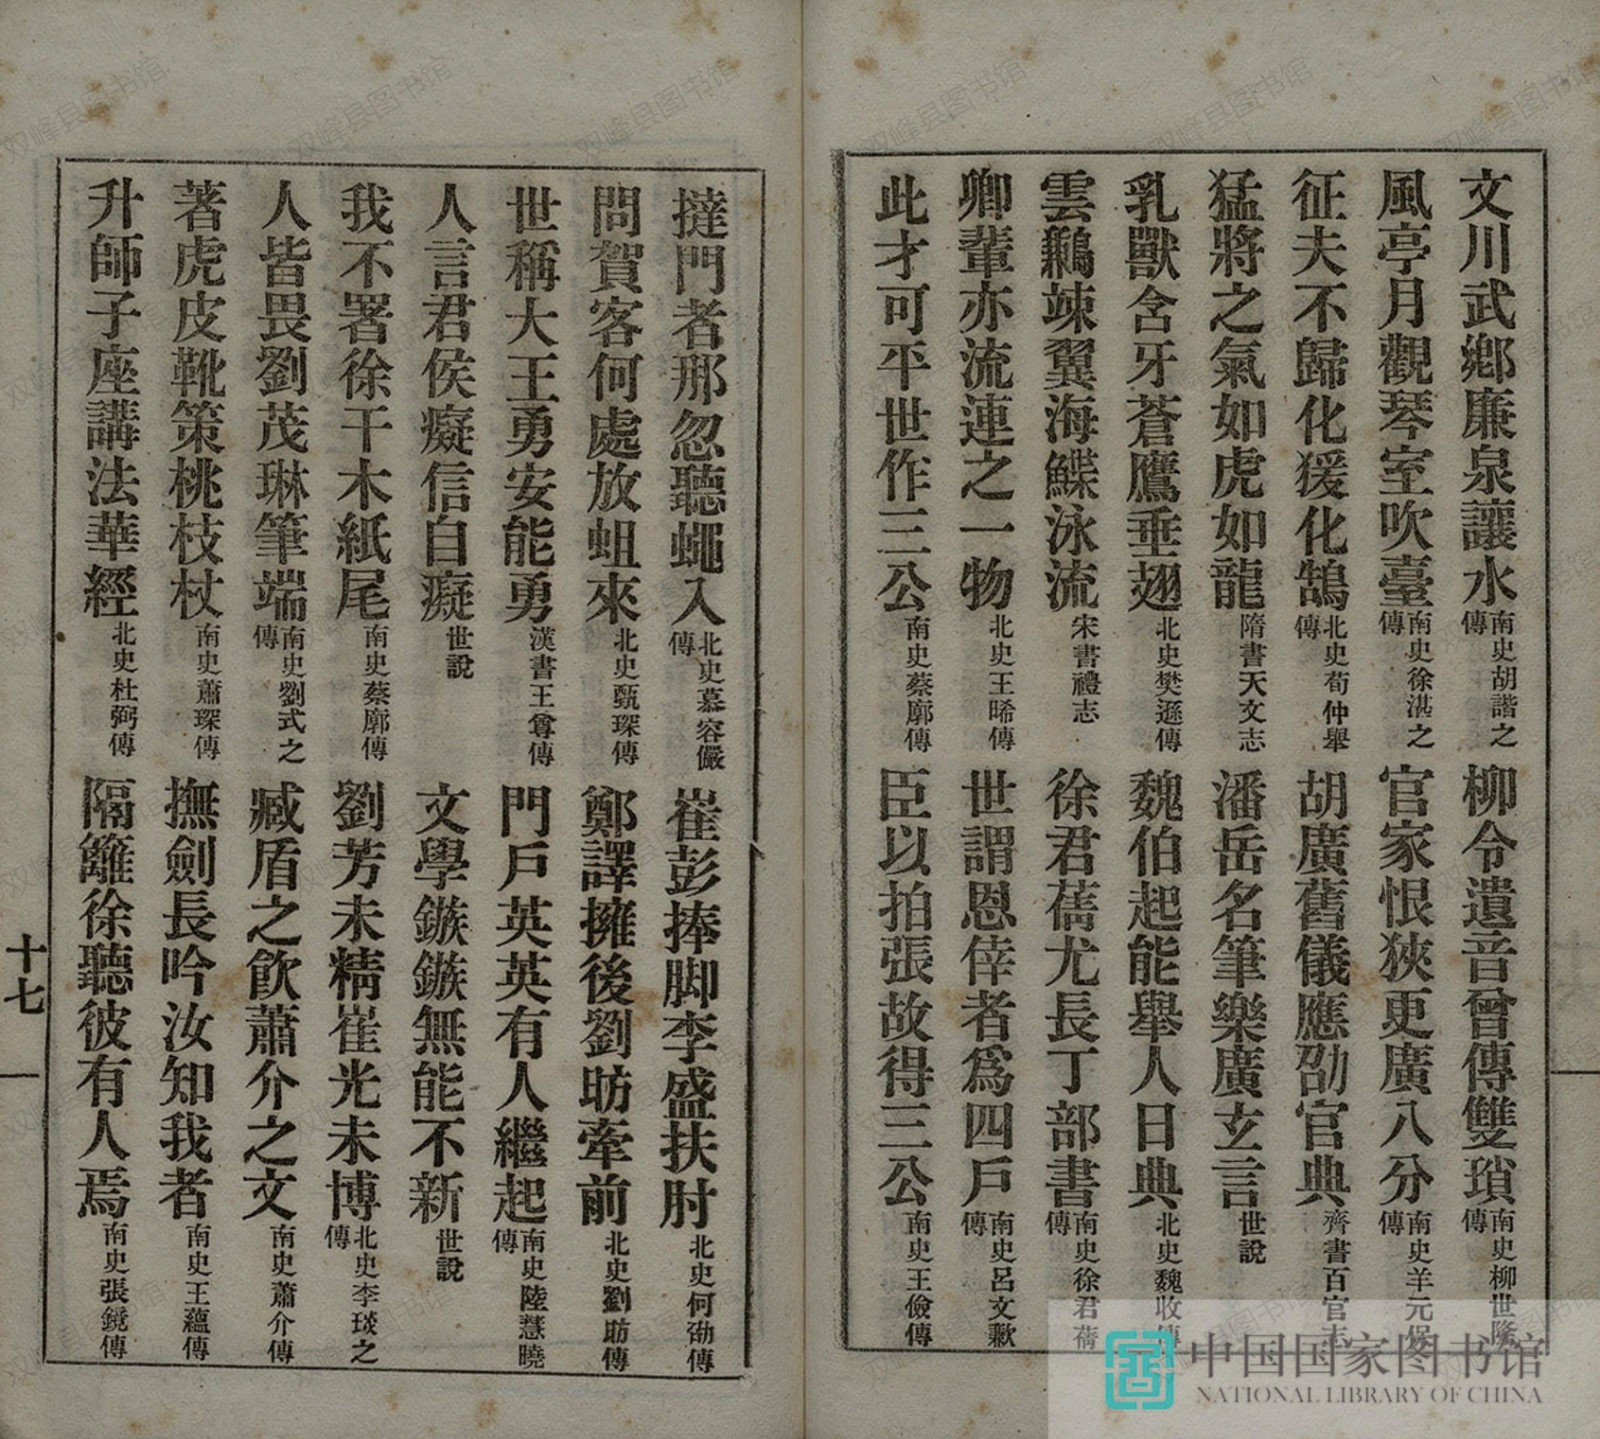 文川武鄉廉泉讓水南史胡諧之傳 柳令遺音曾傳雙瑣南史柳世隆傳
風亭月觀琴室吹臺南史徐湛之傳 官家恨狹更廣八分南史羊元保傳
征夫不歸化猨化鵠北史荀仲舉傳 胡廣舊儀應劭官典齊書百官志
猛將之氣如虎如龍隋書天文志 潘岳名筆樂廣玄言世說
乳獸含牙蒼鷹垂翅北史樊遜傳 魏伯起能舉人日典北史魏收傳
雲鶼竦翼海鰈泳流宋書禮志 徐君蒨尤長丁部書南史徐君蒨傳
卿輩亦流連之一物北史王晞傳 世謂恩倖者爲四戶南史呂文歉傳
此才可平世作三公南史蔡廓傳 臣以拍張故得三公南史王儉傳
撻門者那忽聽蠅入北史慕容儼傳 崔彭捧脚李盛扶肘北史何劭傳
問賀客何處放蛆來北史甄琛傳 鄭譯擁後劉昉牽前北史劉昉傳
世稱大王勇安能勇漢書王尊傳 門戶英英有人繼起南史陸慧曉傳
人言君侯癡信自癡世說 文學鏃鏃無能不新世說
我不署徐干木紙尾南史蔡廓傳 劉芳未精崔光未博北史李琰之傳
人皆畏劉茂琳筆端南史劉式之傳 臧盾之飲蕭介之文南史蕭介傳
著虎皮靴策桃枝杖南史蕭琛傳 撫劍長吟汝知我者南史王蘊傳
升師子座講法華經北史杜弼傳 隔籬徐聽彼有人焉南史張鏡傳
十七
中国国家图书馆
NATIONAL LIBRARY OF CHINA
双峰县图书馆